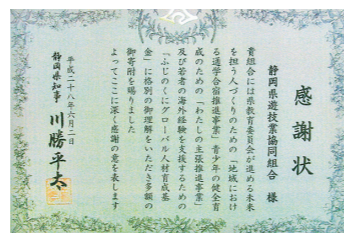 感謝状
静岡県遊技業協同組合 様
貴組合には県教育委員会が進める未来
を担う人づくりのための「地域におけ
る通学合宿推進事業」青少年の健全育
成のための「わたしの主張推進事業」
及び若者の海外経験を支援するための
「ふじのくにグローバル人材育成基
金」に格別の御理解をいただき多額の
御寄附を賜りました
よってここに深く感謝の意を表します
平成二十八年六月二日
静岡県知事 川勝平太